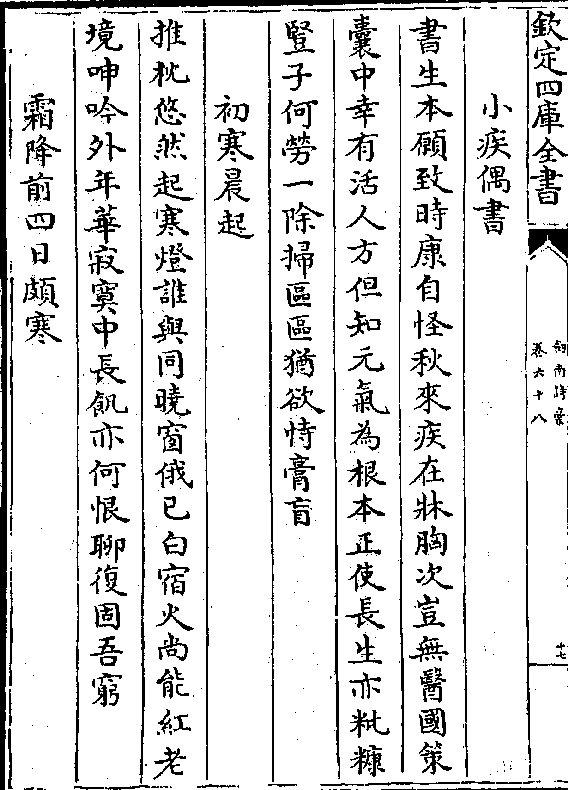 欽定四庫全書
劍南詩稾
卷六十八
十七
小疾偶書
書生本願致時康自怪秋來疾在牀胸次豈無醫國策
囊中幸有活人方但知元氣為根本正使長生亦粃糠
豎子何勞一除掃區區猶欲恃膏肓
初寒晨起
推枕悠然起寒燈誰與同曉窗俄已白宿火尚能紅老
境呻吟外年華寂寞中長飢亦何恨聊復固吾窮
霜降前四日頗寒